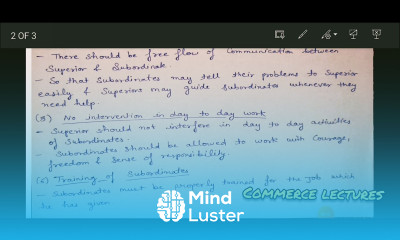 2 OF 3
- There should be free flow of communication between
Superior & Subordinate.
- So that Subordinates may tell their problems to Superior
easily & Superiors may guide Subordinates whenever they
need help.
(5) No intervention in day to day work
- Superior should not interfere in day to day activities
of Subordinates.
- Subordinates should be allowed to work with Courage,
freedom & sense of responsibility.
(6) Training of Subordinates
- Subordinates must be properly trained for the job which
he has given
COMMERCE LECTURES
Mind
Luster